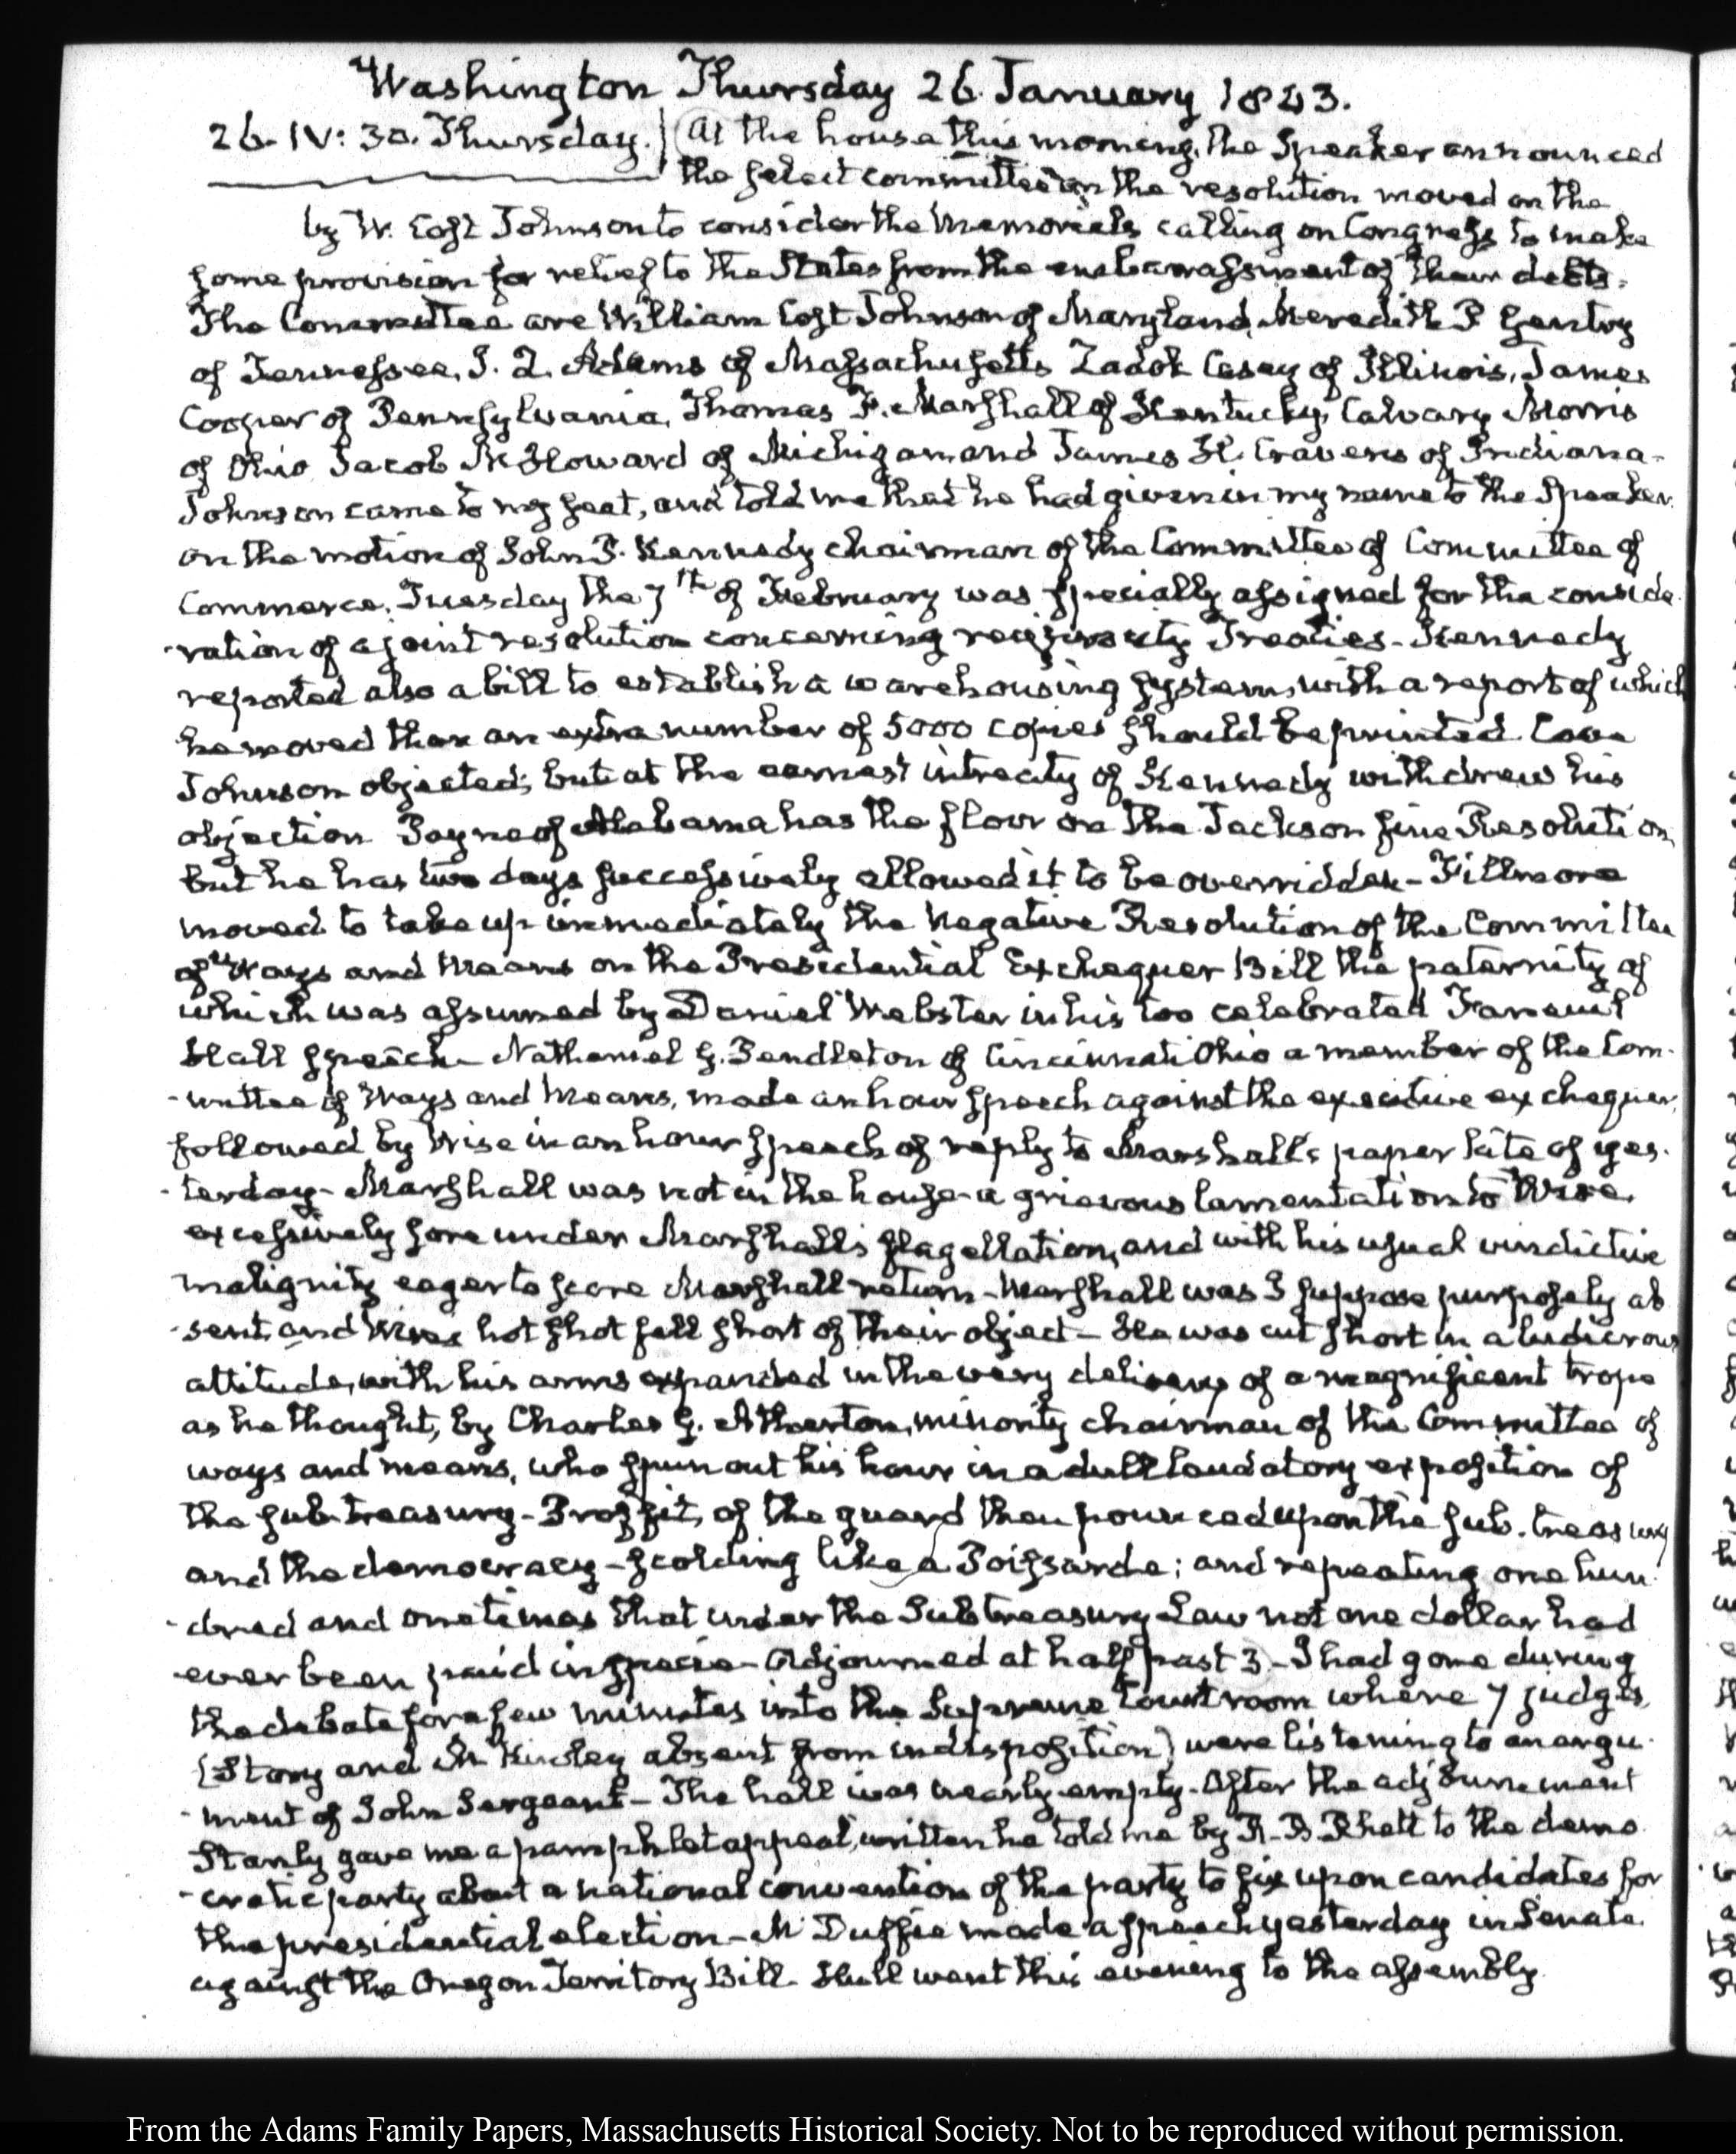 Washington Thursday 26. January 1843.
26. IV: 30. Thursday. At the house this morning, the Speaker announced
the select committee on the resolution moved on the
by W. Cost Johnson to consider the Memorials calling on Congress to make
some provision for relief to the States from the embarrassment of their debts.
The Committee are William Cost Johnson of Maryland, Meredith P Gentry
of Tennessee, J. Q. Adams of Massachusetts Zadok Casey of Illinois, James
Cooper of Pennsylvania, Thomas F. Marshall of Kentucky, Calvary Morris
of Ohio Jacob M Howard of Michigan and James H. Cravens of Indiana-
Johnson came to my seat, and told me that he had given in my name to the Speaker.
on the motion of John P. Kennedy chairman of the Committee of Committee of
Commerce, Tuesday the 7th of February was specially assigned for the conside
-ration of a joint resolution concerning reciprocity Treaties- Kennedy
reported also a bill to establish a warehousing system, with a report of which
he moved that an extra number of 5000 copies should be printed. Cave
Johnson objected; but at the earnest intreaty of Kennedy withdrew his
objection Payne of Alabama has the floor on the Jackson fine Resolution,
but he has two days successively allowed it to be overridden- Fillmore
moved to take up immediately the negative Resolution of the Committee
of Ways and Means on the Presidential Exchequer Bill the paternity of
which was assumed by Daniel Webster in his too celebrated Faneuil
Hall speech- Nathaniel G. Pendleton of Cincinnati Ohio a member of the Com-
-mittee of Ways and Means, made an hour speech against the executive exchequer,
followed by Wise in an hour speech of reply to Marshall's paper kite of yes-
-terday- Marshall was not in the house- a grievous lamentation to Wise,
excessively sore under Marshall's flagellation, and with his usual vindictive
malignity eager to score Marshall in return- Marshall was I suppose purposely ab
-sent, and Wise's hot shot fell short of their object- He was cut short in a ludicrous
attitude, with his arms expanded in the very delivery of a magnificent trope
as he thought, by Charles G. Atherton, minority chairman of the Committee of
ways and means, who spun out his hour in a dull laudatory exposition of
the sub-treasury- Proffit, of the guard then pounced upon the sub. treasury
and the democracy- scolding like a Poissarde; and repeating one hun-
-dred and one times that under the Subtreasury Law not one dollar had
ever been paid in specie- Adjourned at half past 3- I had gone during
the debate for a few minutes into the Supreme Court room where 7 judges,
(Story and McKinley absent from indisposition) were listening to an argu-
-ment of John Sergeant- The hall was nearly empty- After the adjournment
Stanly gave me a pamphlet appeal, written he told me by R. B. Rhett to the demo
-cratic party about a national convention of the party to fix upon candidates for
the presidential election- McDuffie made a speech yesterday in Senate
against the Oregon Territory Bill. Hull went this evening to the assembly
From the Adams Family Papers, Massachusetts Historical Society. Not to be reproduced without permission.